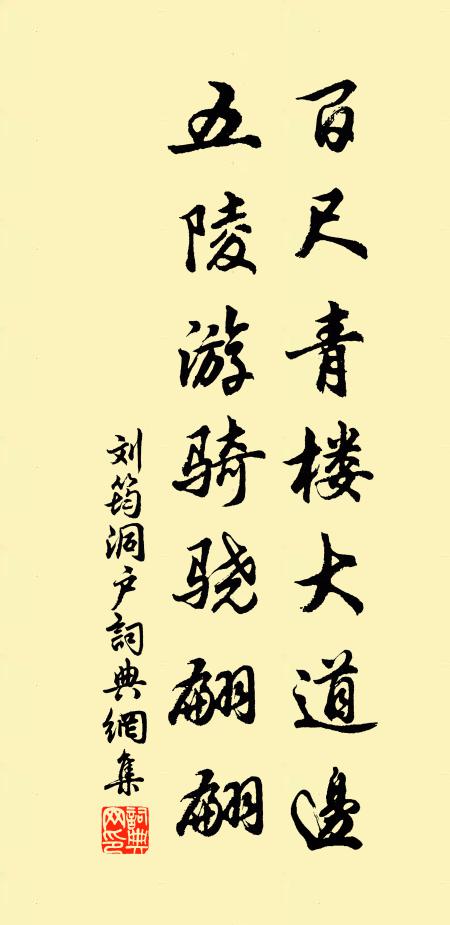 百尺青楼大道邊
五陵游骑骁翩翩
刘筠洞户詞典網集
詞典网印